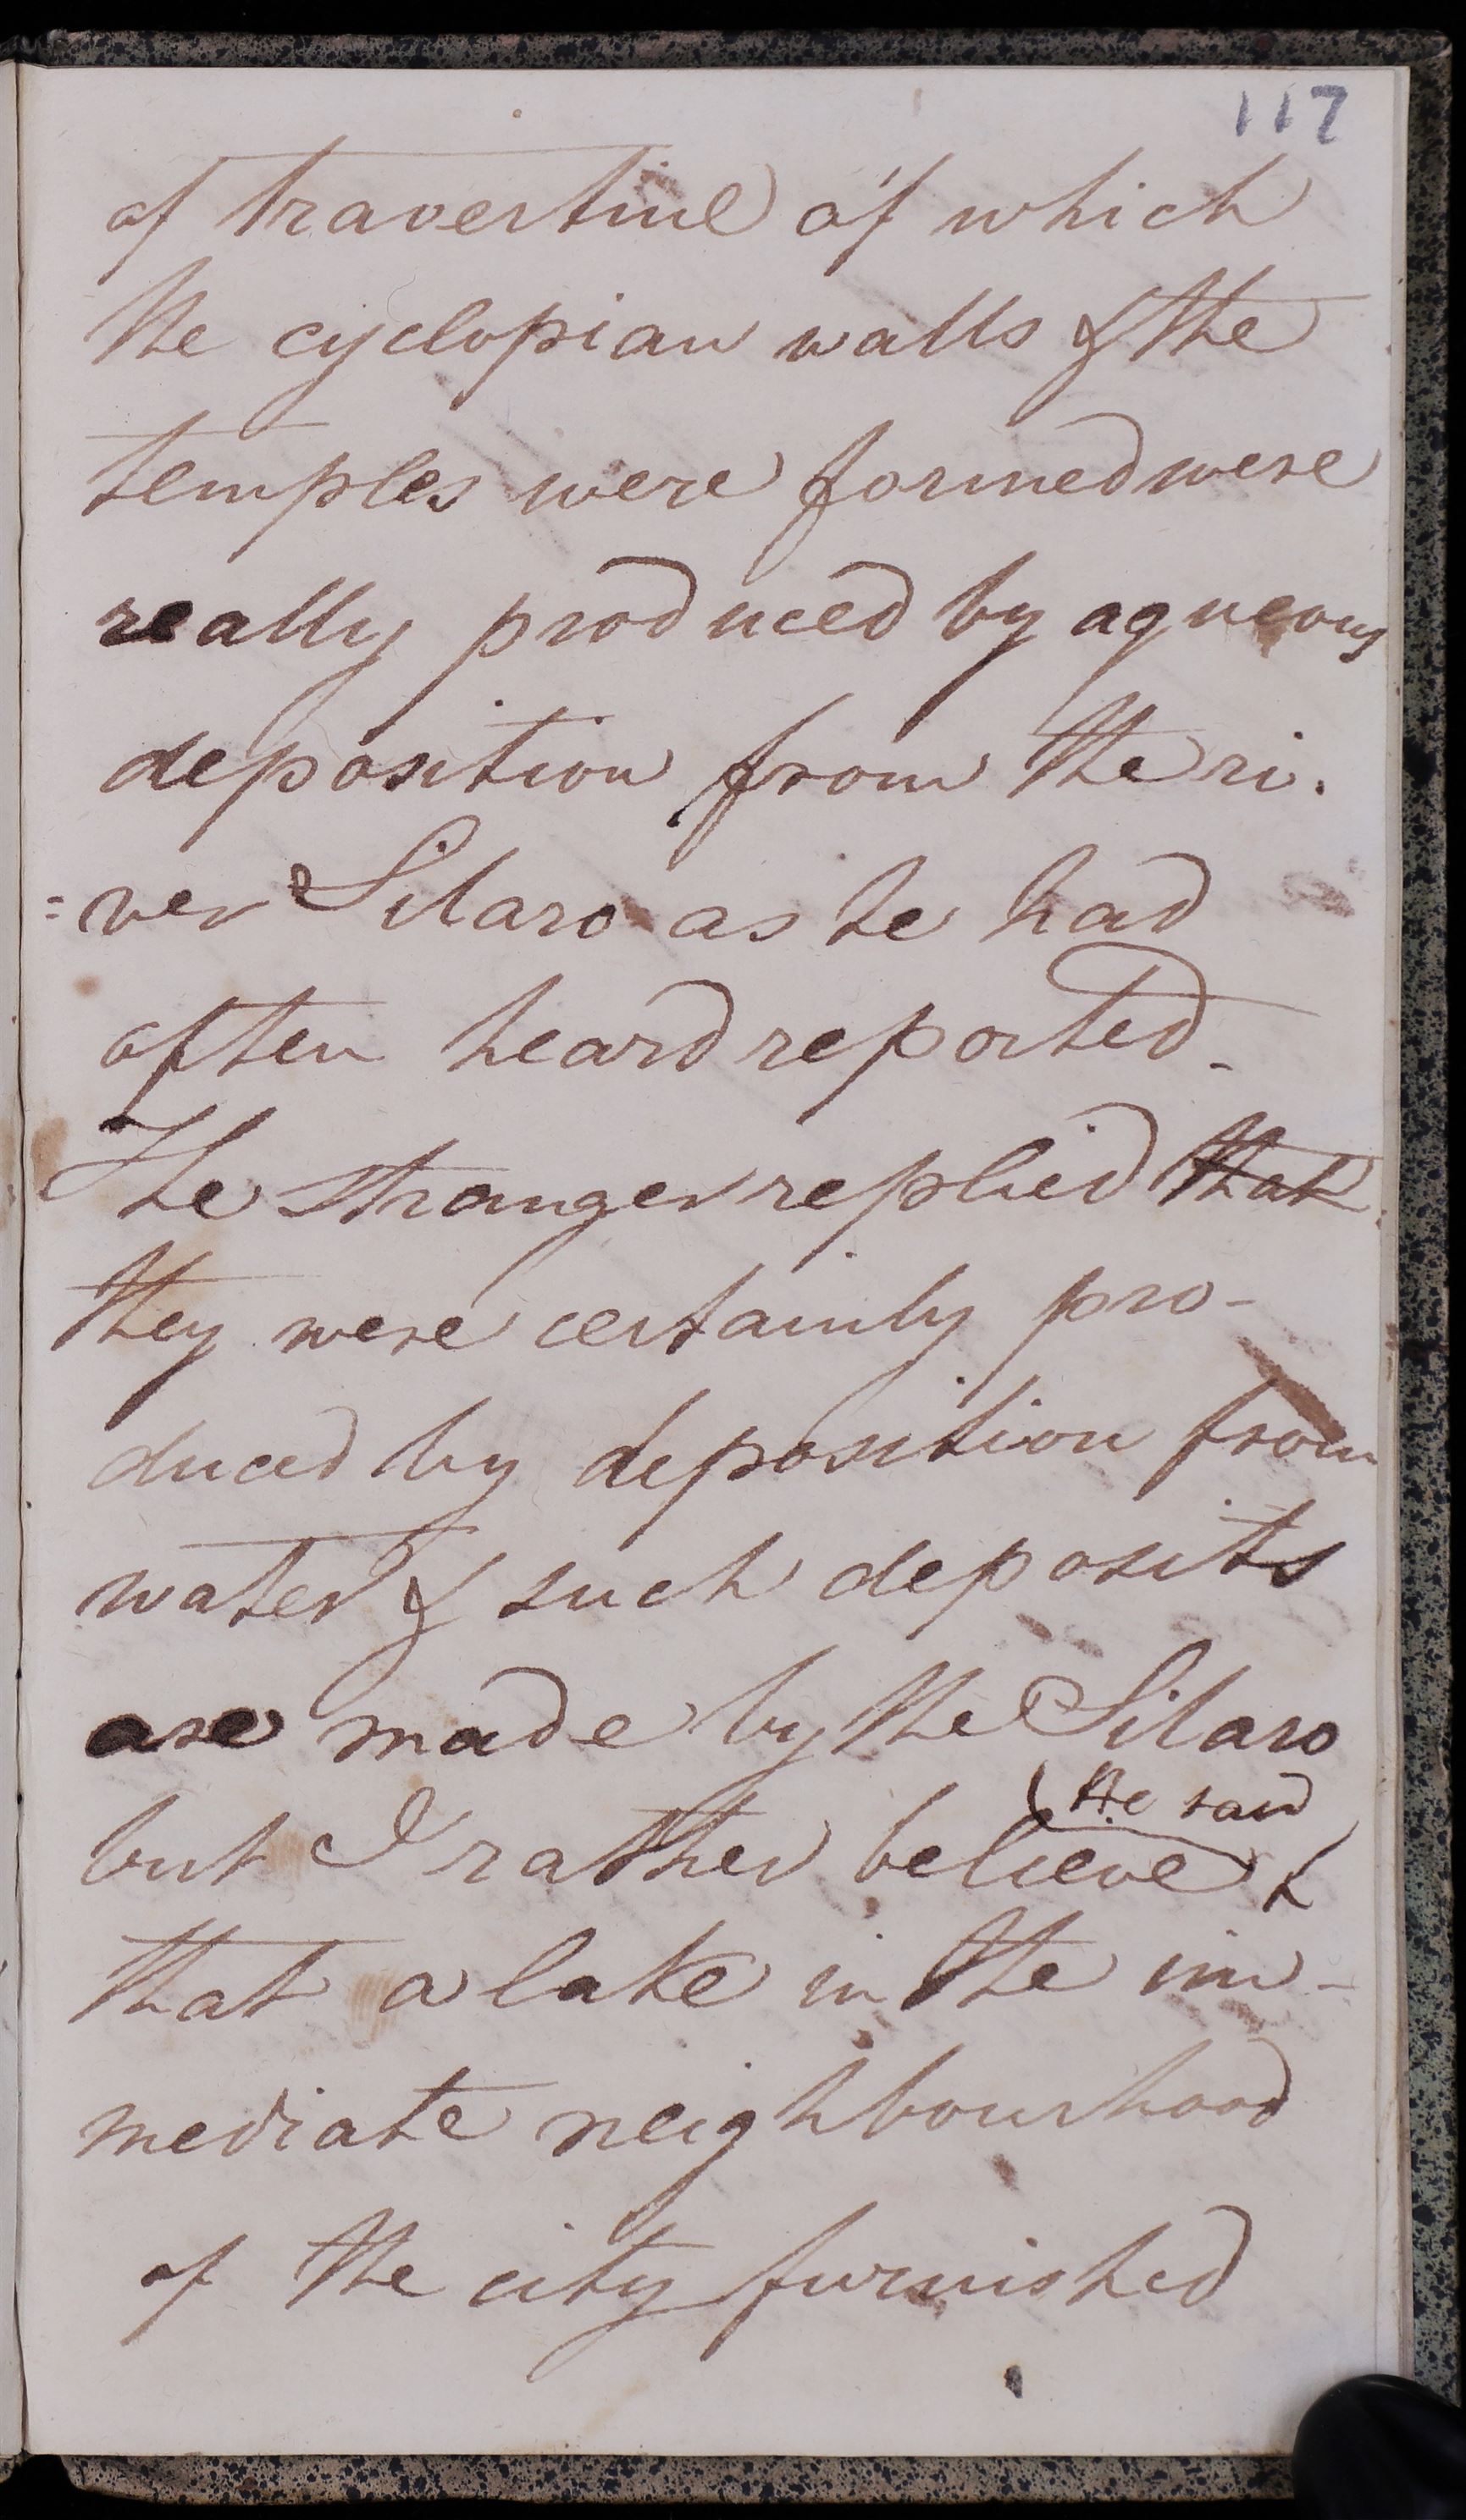 117
of travertine of which
the cyclopian walls & the
temples were formed were
really produced by aqueous
deposition from the ri.
=ver Silaro as he had
often heard reported_
The stranger replied that
they were certainly pro-
duced by deposition from
water & such deposits
are made by the Silaro
(He said
but I rather believe
that a lake in the im-
mediate neighbourhood
of the city furnished